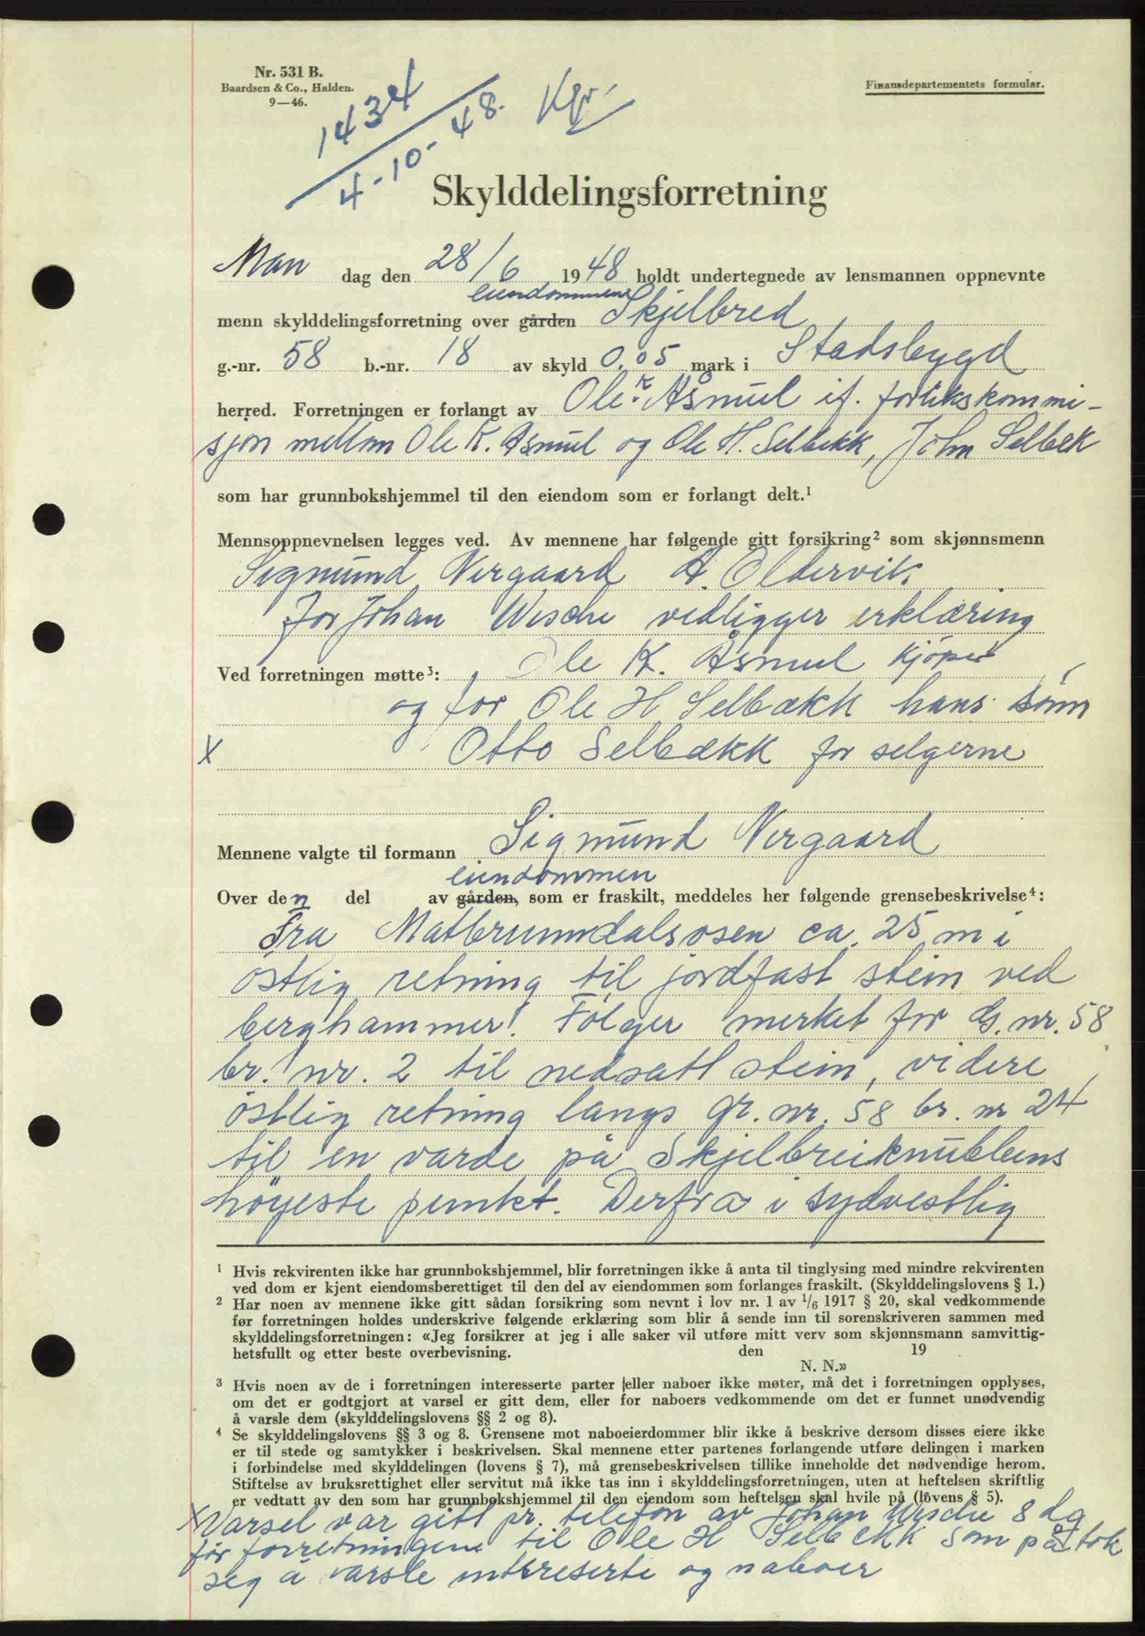 Nr. 531 B.
Baardsen & Co., Halden.
9—46.
Finansdepartementets formular.
1434
4-10-48.
Skylddelingsforretning
Man dag den 28/6 1948 holdt undertegnede av lensmannen oppnevnte
eiendommen
menn skylddelingsforretning over gården Skjelbred
g.-nr. 58 b.-nr. 18 av skyld 0.05 mark i Stadsbygd
herred. Forretningen er forlangt av Ole K. Åsmul if. forlikskommi-
sjon mellom Ole K. Åsmul og Ole H. Selbekk, John Selbek
som har grunnbokshjemmel til den eiendom som er forlangt delt.¹
Mennsoppnevnelsen legges ved. Av mennene har følgende gitt forsikring² som skjønnsmenn
Sigmund Vergaard A. Oldervik
for Johan Wische vedligger erklæring
Ved forretningen møtte³: Ole K. Åsmul kjøper
og for Ole H Selbækk hans sönn
X Otto Selbækk for selgerne
Mennene valgte til formann Sigmund Vergaard
eiendommen
Over den del av gården, som er fraskilt, meddeles her følgende grensebeskrivelse⁴:
Fra Matbrunndalsosen ca. 25 m i
östlig retning til jordfast stein ved
berghammer. Fölger merket for G. nr. 58
br. nr. 2 til nedsatt stein, videre
östlig retning langs gr. nr. 58 br. nr 24
til en varde på Skjelbreiknubbens
höyeste punkt. Derfra i sydvestlig
¹ Hvis rekvirenten ikke har grunnbokshjemmel, blir forretningen ikke å anta til tinglysing med mindre rekvirenten
ved dom er kjent eiendomsberettiget til den del av eiendommen som forlanges fraskilt. (Skylddelingslovens § 1.)
² Har noen av mennene ikke gitt sådan forsikring som nevnt i lov nr. 1 av 1/6 1917 § 20, skal vedkommende
før forretningen holdes underskrive følgende erklæring som blir å sende inn til sorenskriveren sammen med
skylddelingsforretningen: «Jeg forsikrer at jeg i alle saker vil utføre mitt verv som skjønnsmann samvittig-
hetsfullt og etter beste overbevisning. den 19
N. N.»
³ Hvis noen av de i forretningen interesserte parter eller naboer ikke møter, må det i forretningen opplyses,
om det er godtgjort at varsel er gitt dem, eller for naboers vedkommende om det er funnet unødvendig
å varsle dem (skylddelingslovens §§ 2 og 8).
⁴ Se skylddelingslovens §§ 3 og 8. Grensene mot naboeierdommer blir ikke å beskrive dersom disses eiere ikke
er til stede og samtykker i beskrivelsen. Skal mennene etter partenes forlangende utføre delingen i marken
i forbindelse med skylddelingen (lovens § 7), må grensebeskrivelsen tillike inneholde det nødvendige herom.
Stiftelse av bruksrettighet eller servitut må ikke tas inn i skylddelingsforretningen, uten at heftelsen skriftlig
er vedtatt av den som har grunnbokshjemmel til den eiendom som heftelsen skal hvile på (lovens § 5).
X Varsel var gitt pr. telefon av Johan Wische 8 dg
för forretningen til Ole H Selbekk som påtok
seg å varsle interreserte og naboer